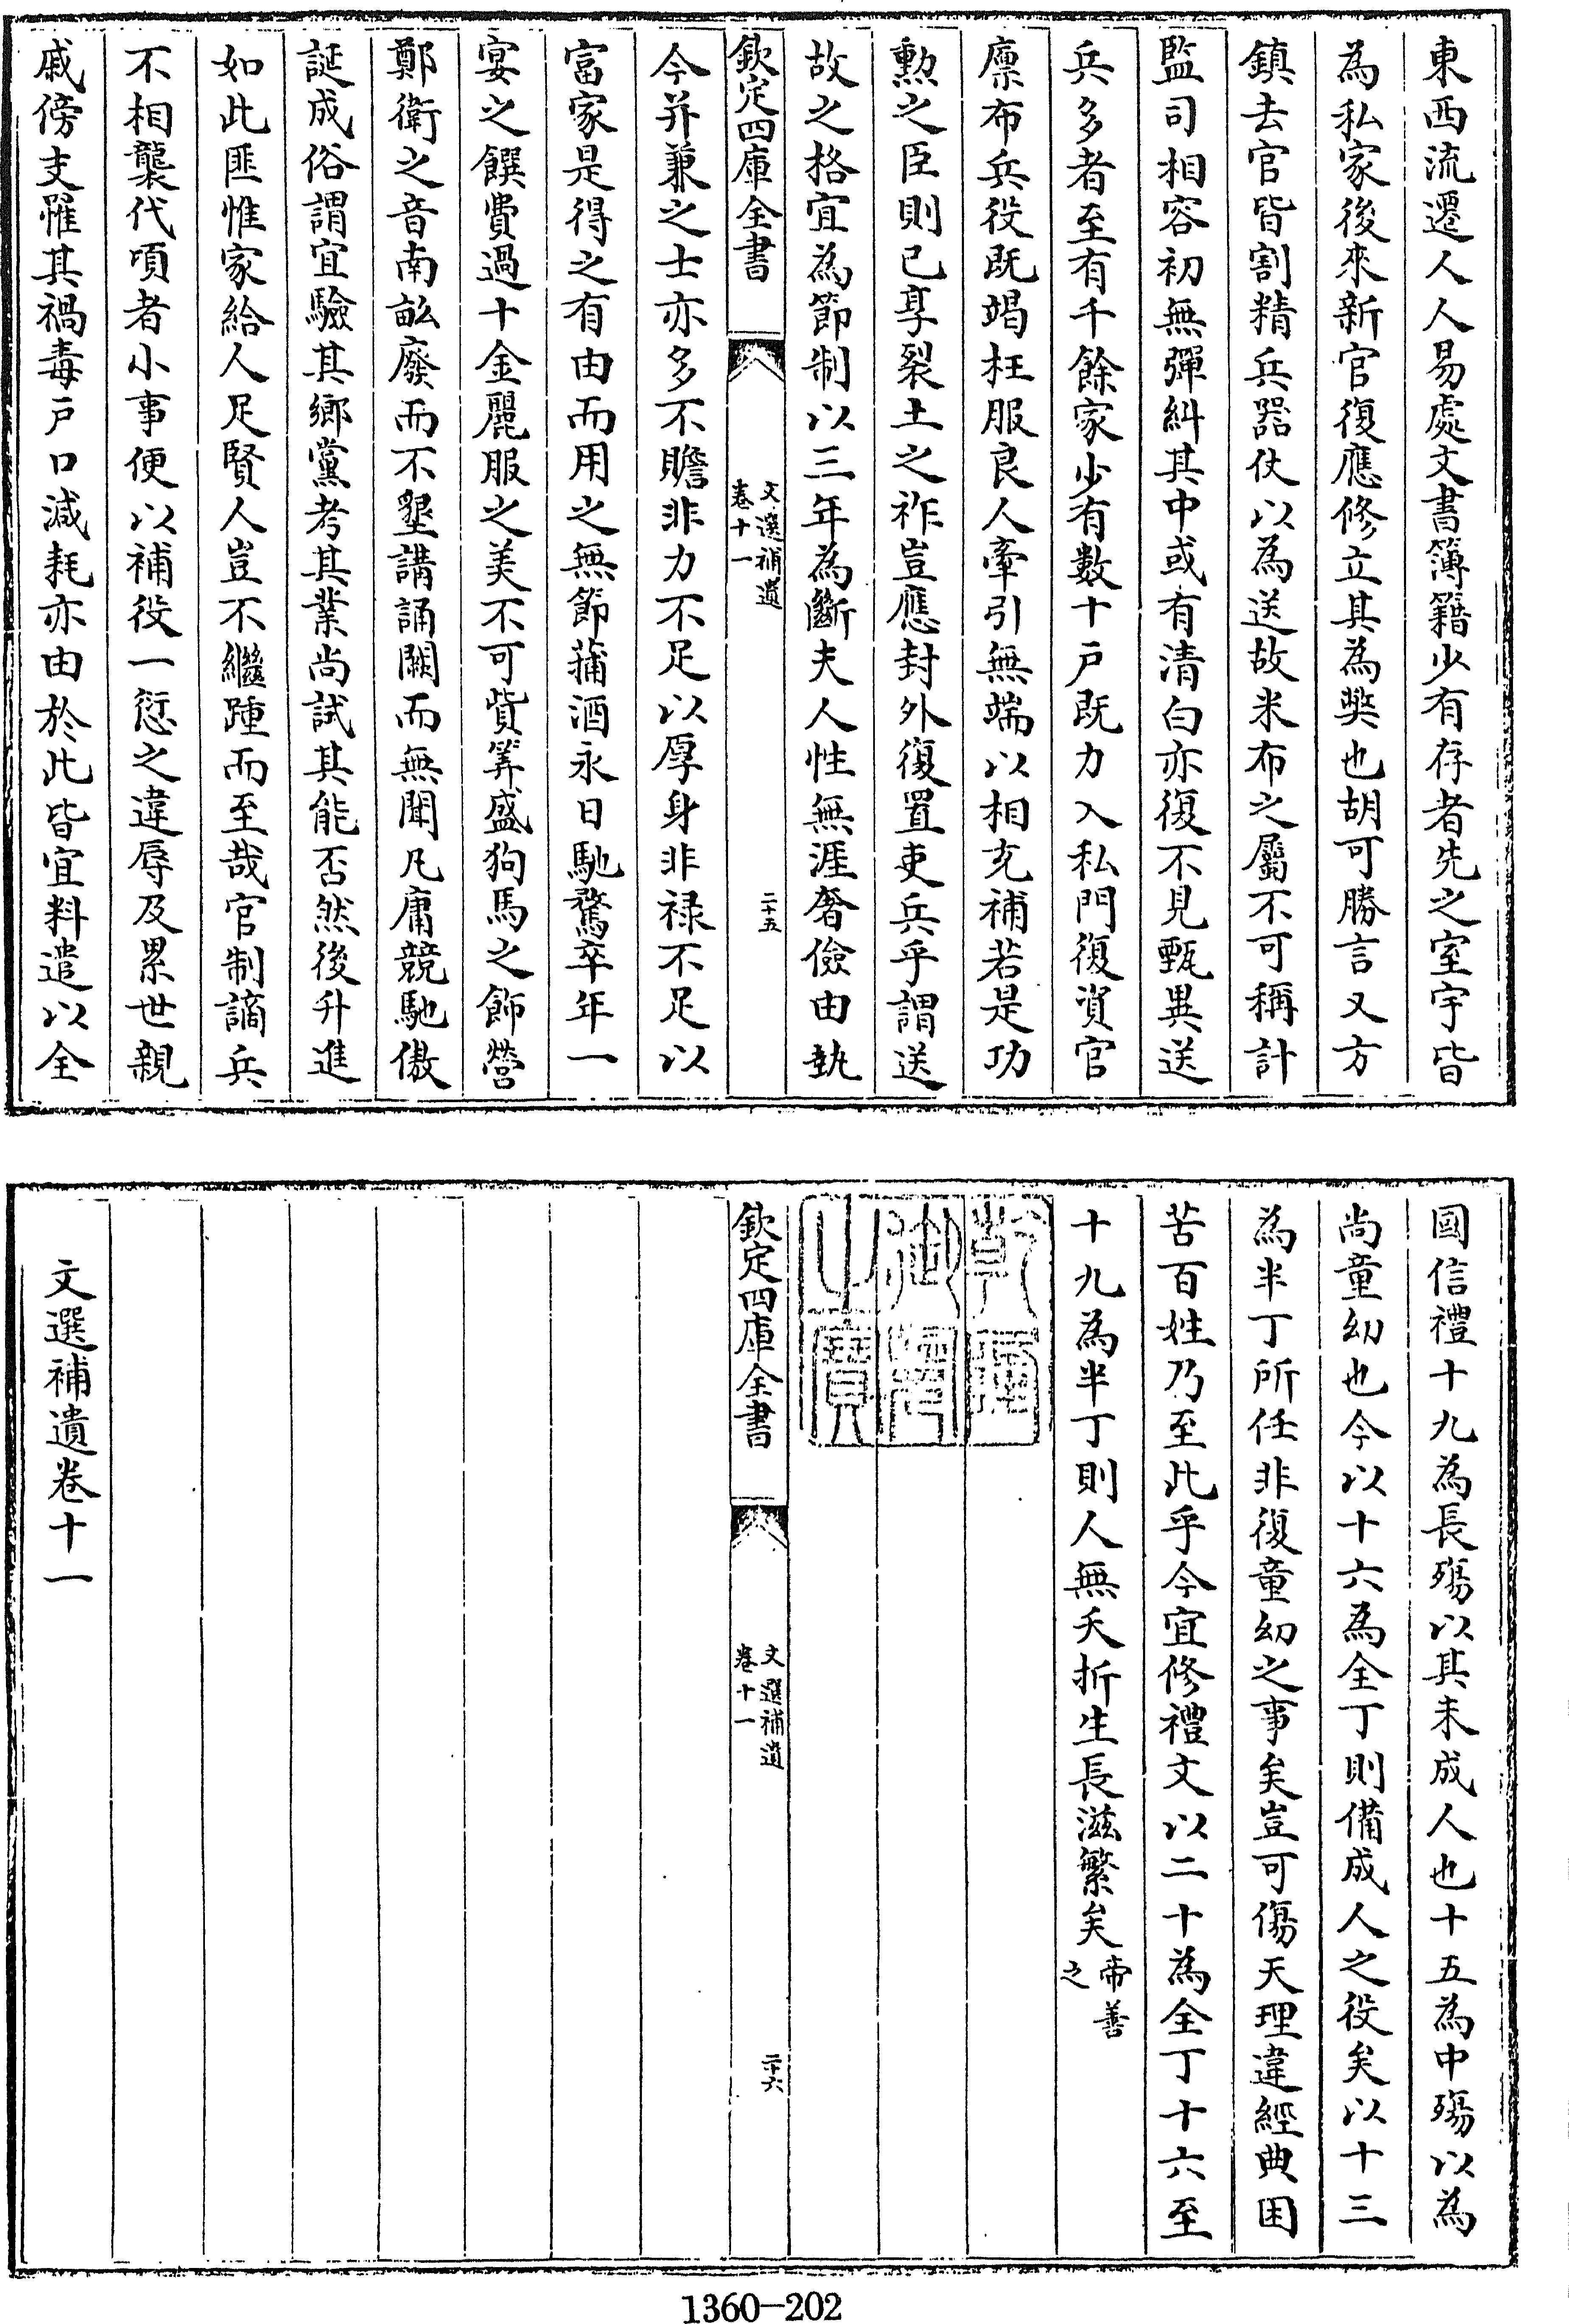 東西流遷人人易處文書簿籍少有存者先之室宇皆
為私家後來新官復應修立其為獘也胡可勝言又方
鎮去官皆割精兵器仗以為送故米布之屬不可稱計
監司相容初無彈糾其中或有清白亦復不見甄異送
兵多者至有千餘家少有數十戶既力入私門復資官
廪布兵役既竭枉服良人牽引無端以相充補若是功
勲之臣則已享裂土之祚豈應封外復置吏兵乎謂送
故之格宜為節制以三年為斷夫人性無涯奢儉由埶
欽定四庫全書
文選補遺
卷十一
二十五
今并兼之士亦多不贍非力不足以厚身非禄不足以
富家是得之有由而用之無節蒱酒永日馳騖卒年一
宴之饌費過十金麗服之美不可貲筭盛狗馬之飾營
鄭衛之音南畝廢而不墾講誦闕而無聞凡庸競馳傲
誕成俗謂宜驗其鄉黨考其業尚試其能否然後升進
如此匪惟家給人足賢人豈不繼踵而至哉官制謫兵
不相襲代頃者小事便以補役一愆之違辱及累世親
戚傍支罹其禍毒戶口減耗亦由於此皆宜料遣以全
國信禮十九為長殤以其未成人也十五為中殤以為
尚童幼也今以十六為全丁則備成人之役矣以十三
為半丁所任非復童幼之事矣豈可傷天理違經典困
苦百姓乃至此乎今宜修禮文以二十為全丁十六至
十九為半丁則人無夭折生長滋繁矣帝善
之
乾隆
御覽
之寶
欽定四庫全書
文選補遺
卷十一
二十六
文選補遺卷十一
1360-202